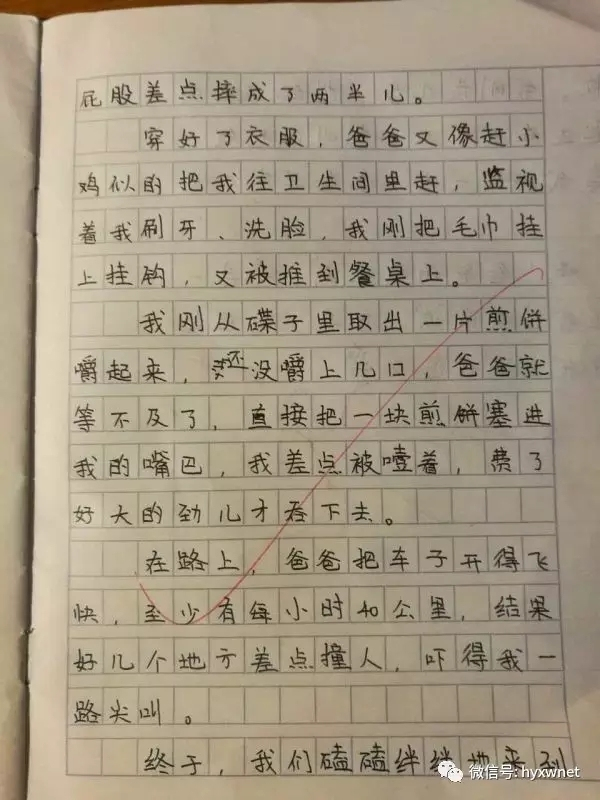 屁股差点摔成了两半儿。
穿好了衣服，爸爸又像赶小
鸡似的把我往卫生间里赶，监视
着我刷牙、洗脸，我刚把毛巾挂
上挂钩，又被推到餐桌上。
我刚从碟子里取出一片煎饼
嚼起来，还没嚼上几口，爸爸就
等不及了，直接把一块煎饼塞进
我的嘴巴，我差点被噎着，费了
好大的劲儿才吞下去。
在路上，爸爸把车子开得飞
快，至少有每小时40公里，结果
好几个地方差点撞人，吓得我一
路尖叫。
终于，我们磕磕绊绊地来到
微信号: hyxwnet